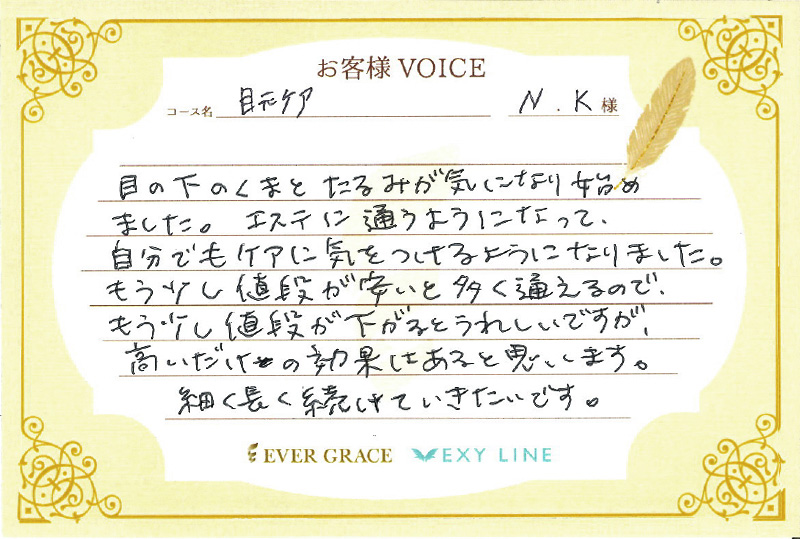 お客様 VOICE
コース名 目元ケア N.K 様
目の下のくまと たるみが気になり始め
ました。エステに通うようになって、
自分でもケアに気をつけるようになりました。
もう少し値段が安いと多く通えるので、
もう少し値段が下がるとうれしいですが、
高いだけの効果はあると思います。
細く長く続けていきたいです。
EVER GRACE EXY LINE